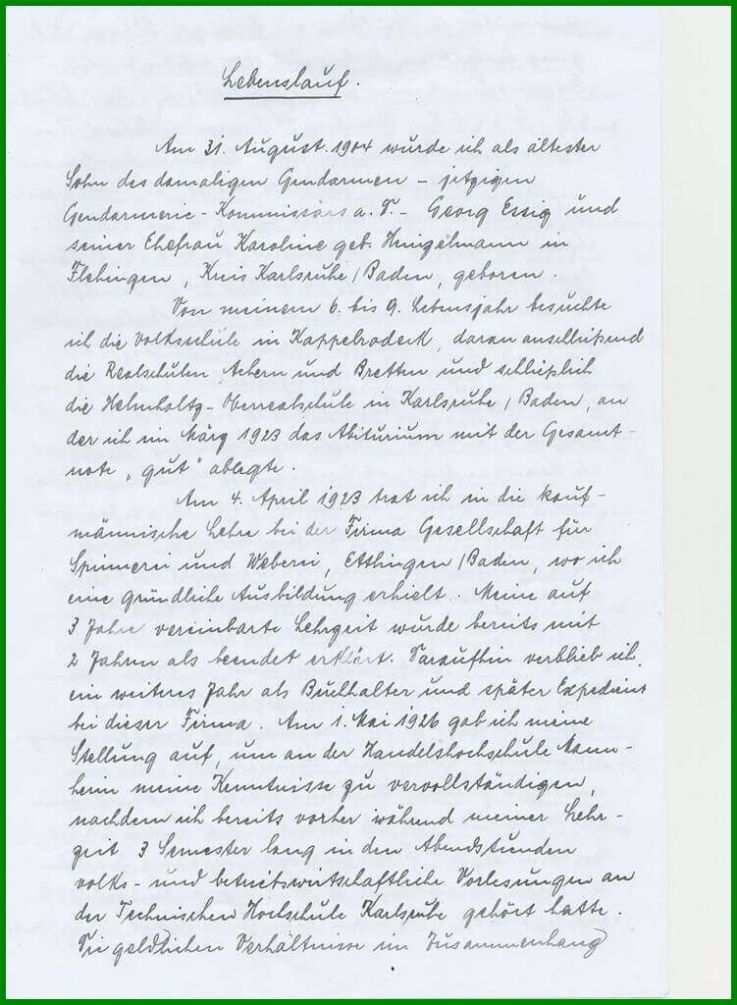 Lebenslauf.
Am 31. August 1904 wurde ich als ältester
Sohn des damaligen Gendarmen – jetzigen
Gendarmerie-Kommissärs a. D. – Georg Essig und
seiner Ehefrau Karoline geb. in
Flehingen, Kreis Karlsruhe/Baden, geboren.
Von meinem 6. bis 9. Lebensjahr besuchte
ich die Volksschule in Kappelrodeck, daran anschließend
die Realschulen Achern und Bretten und schließlich
die Helmholtz-Oberrealschule in Karlsruhe/Baden, an
der ich im März 1923 das Abiturium mit der Gesamt-
note „gut“ ablegte.
Am 4. April 1923 trat ich in die kauf-
männische Lehre bei der Firma Gesellschaft für
Spinnerei und Weberei, Ettlingen/Baden, wo ich
eine gründliche Ausbildung erhielt. Meine auf
3 Jahre vereinbarte Lehrzeit wurde bereits mit
2 Jahren als beendet erklärt. Daraufhin verblieb ich
ein weiteres Jahr als Buchhalter und später Expedient
bei dieser Firma. Am 1. Mai 1926 gab ich meine
Stellung auf, um an der Handelshochschule Mann-
heim meine Kenntnisse zu vervollständigen,
nachdem ich bereits vorher während meiner Lehr-
zeit 3 Semester lang in den Abendstunden
volks- und betriebswirtschaftliche Vorlesungen an
der Technischen Hochschule Karlsruhe gehört hatte.
Die geldlichen Verhältnisse im Zusammenhang